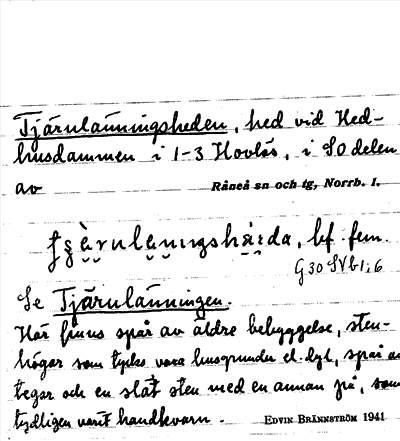 Tjärnlänningsheden, hed vid Hed-
husdammen i 1-3 Hovlös, i SO delen
av Råneå sn och tg, Norrb. l.
bf. fem.
G 30 SV b 1; 6
Se Tjärnlänningen.
Här finns spår av äldre bebyggelse, sten-
högar som tycks vara husgrunder el. dyl., spår av
tegar och en slät sten med en annan på, som
tydligen varit handkvarn. EDVIN BRÄNNSTRÖM 1941